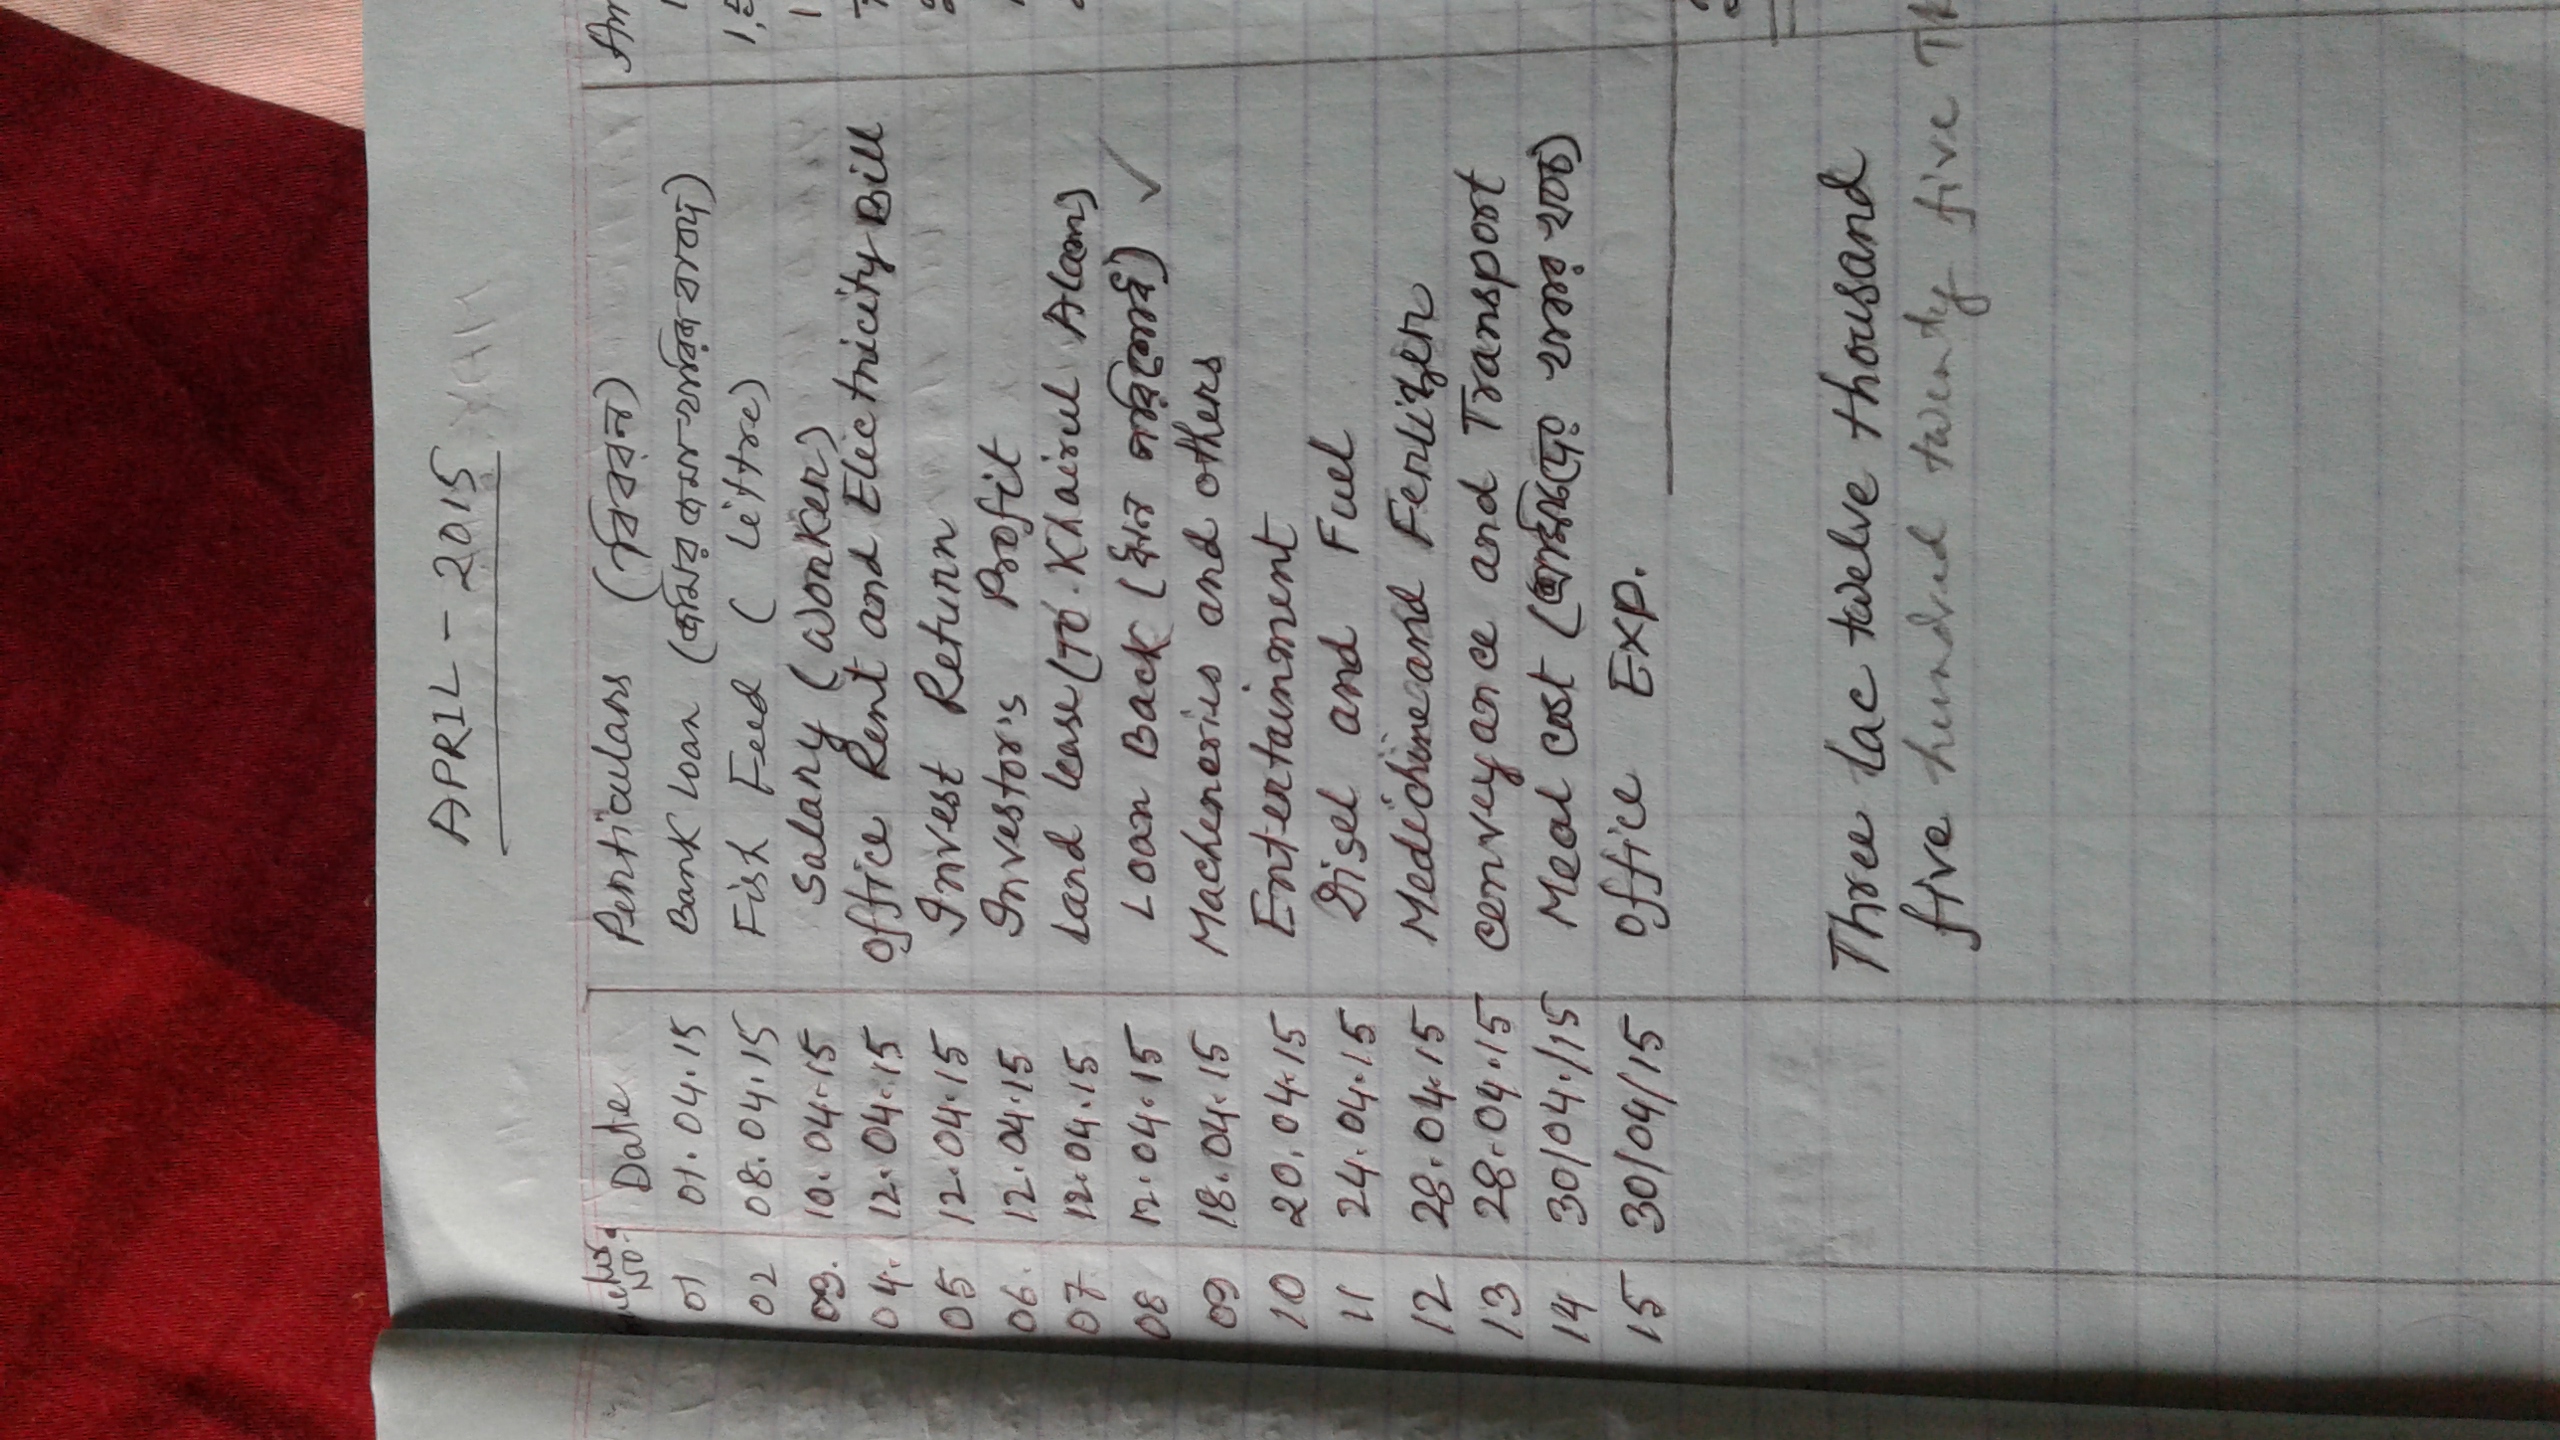 APRIL - 2015
No. Date Perticulars (বিবরন)
01 01.04.15 Bank Loan (জমির জমা খারিজ বাবদ) 1
02 08.04.15 Fish Feed ( Littre) 1,5
03. 10.04.15 Salary (Worker) 1
04. 12.04.15 Office Rent and Electricity Bill
05 12.04.15 Invest Return
06. 12.04.15 Investor's Profit
07 12.04.15 Land lease (To. Khairul Alam)
08 12.04.15 Loan Back (ঋন পরিশোধ) ✓
09 18.04.15 Macheneries and others
10 20.04.15 Entertainment
11 24.04.15 Disel and Fuel
12 28.04.15 Medichine and Ferlizer
13 28.04.15 Conveyance and Transport
14 30/04./15 Meal cost (শ্রমিকদের খাবার খরচ)
15 30/04/15 Office Exp.
Three lac twelve thousand
five hundred twenty five Tk